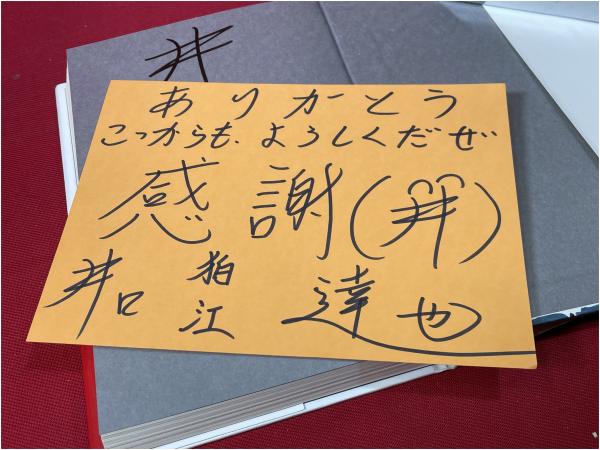 井
ありがとう
こっからも、よろしくだぜ
感謝(井)
井口 狛江 達也